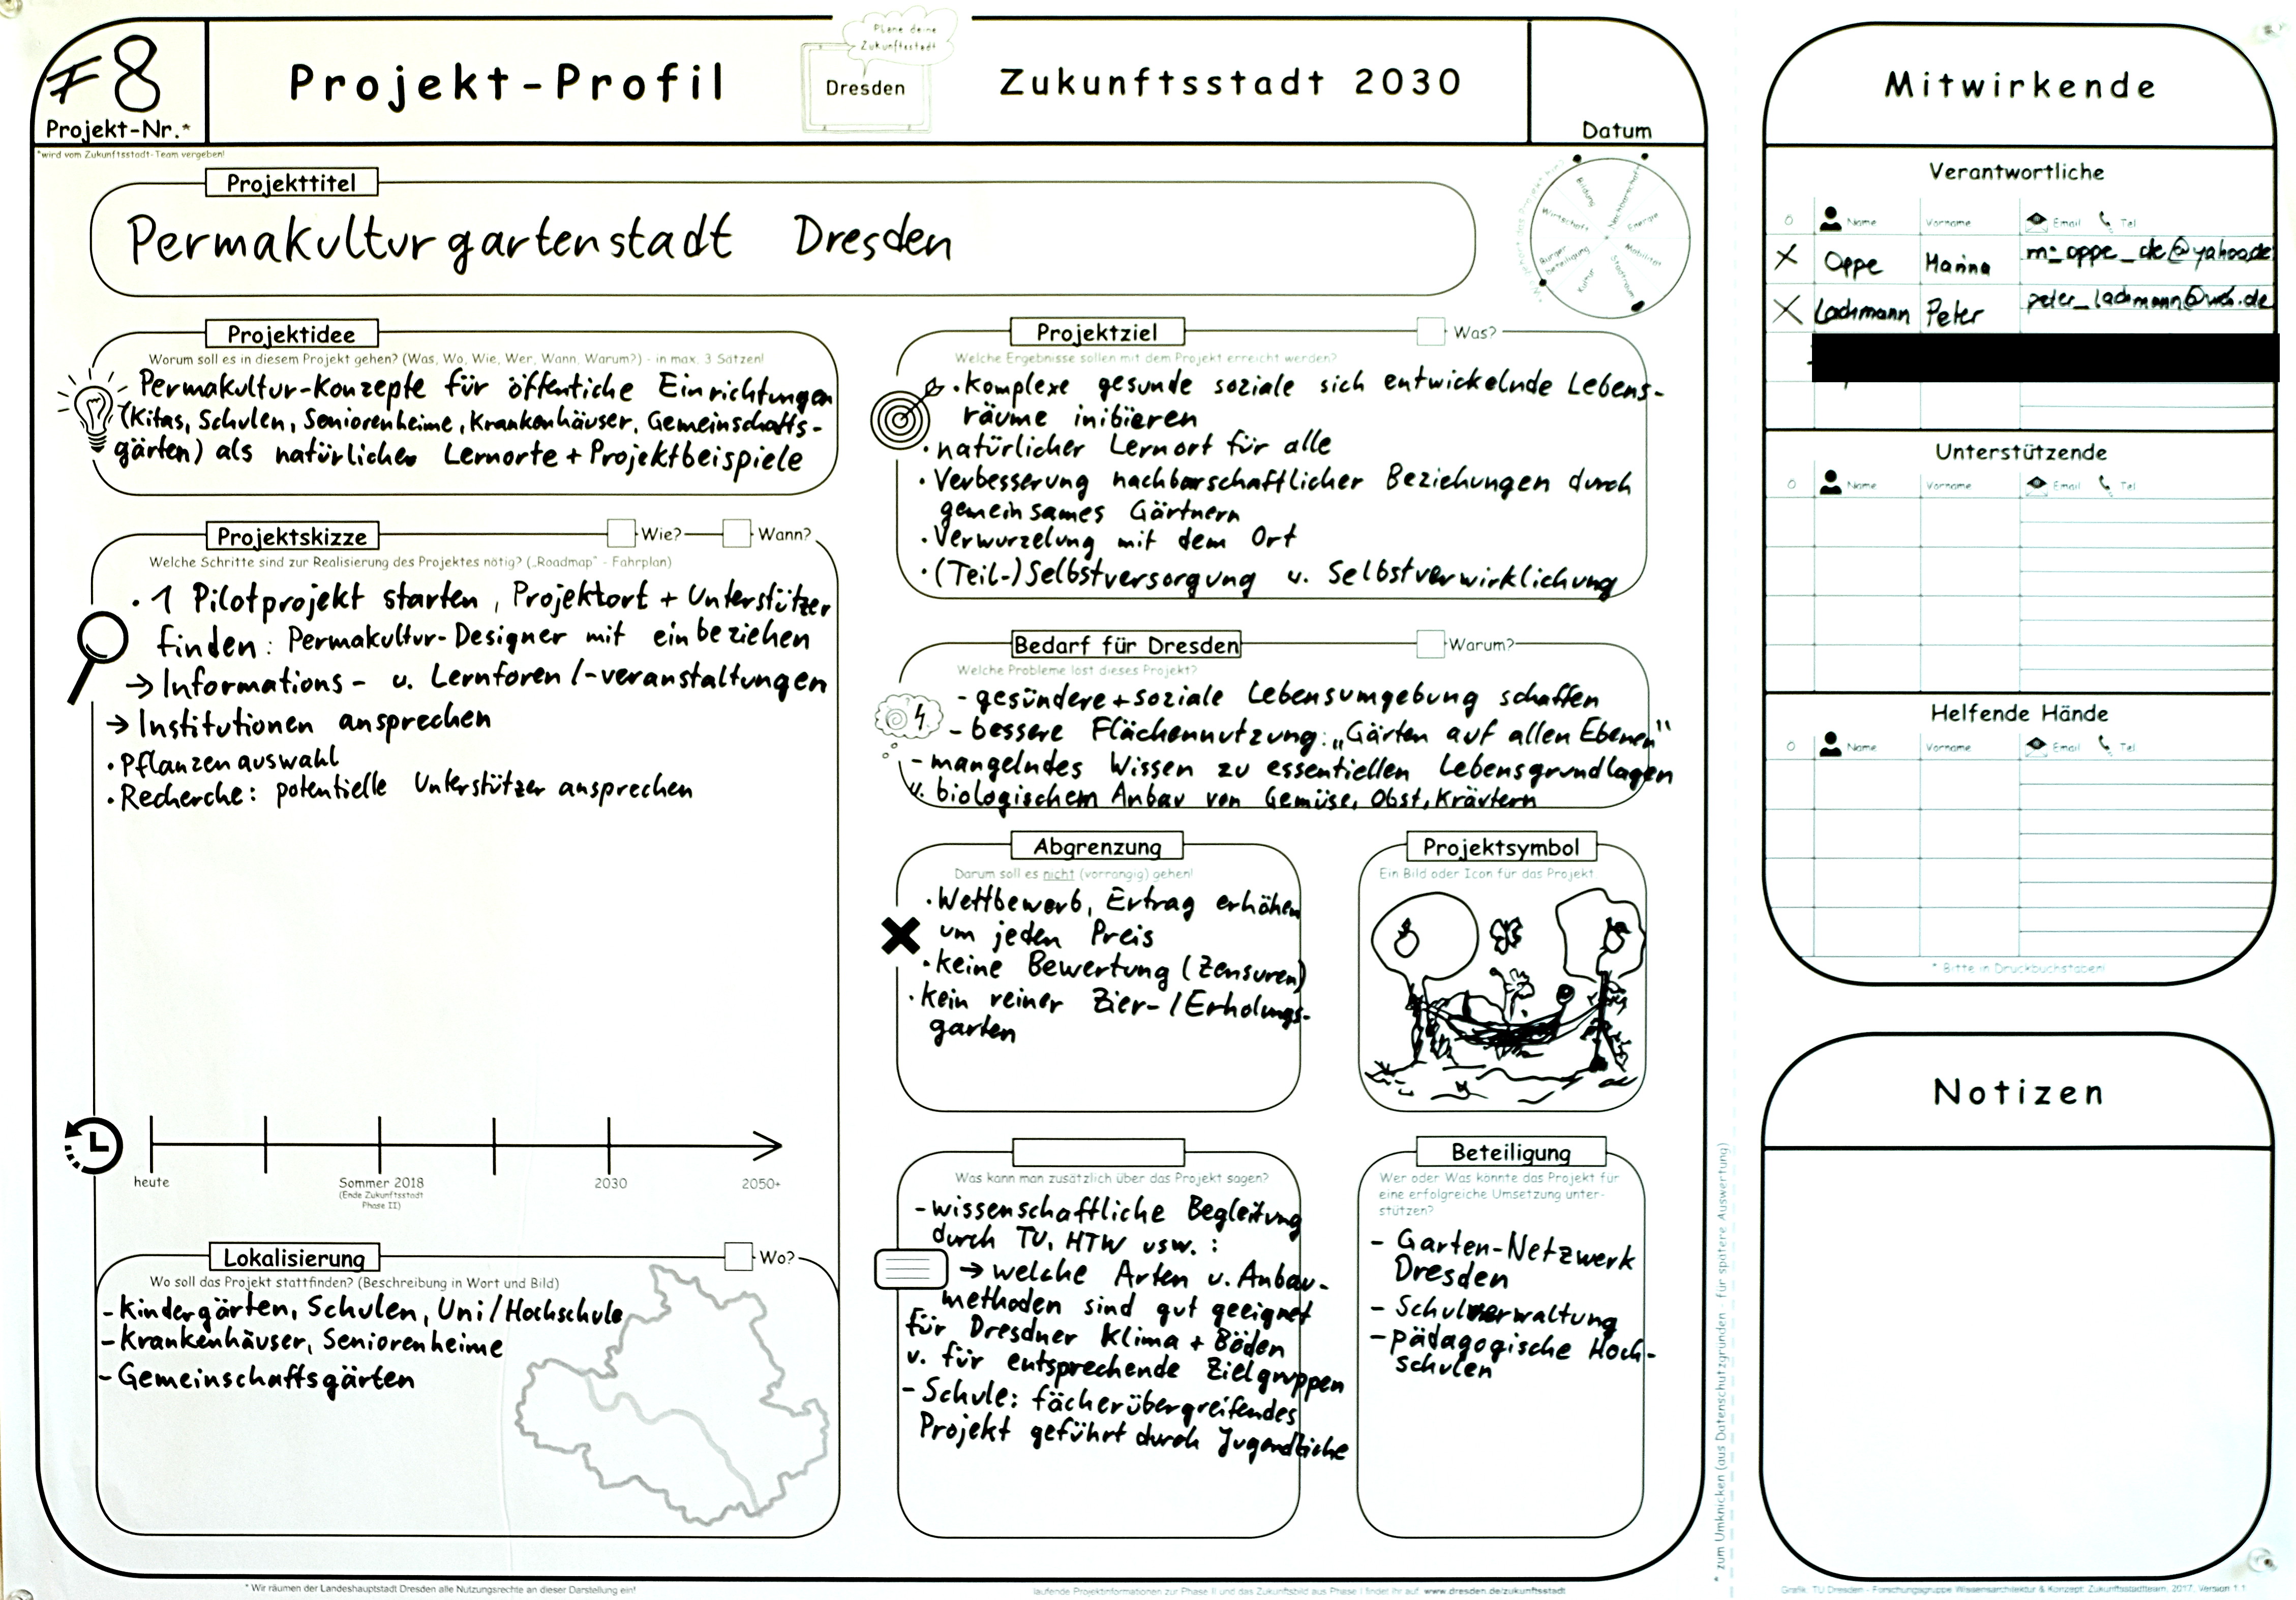 F8
Projekt-Nr.*
*wird vom Zukunftsstadt-Team vergeben!
Projekt-Profil
Plane deine
Zukunftsstadt
Dresden
Zukunftsstadt 2030
Datum
Projekttitel
Permakulturgartenstadt Dresden
Bildung
Nachbarschaft
Wirtschaft
Energie
Bürger
beteiligung
Mobilität
Kultur
Stadtraum
Projektidee
Worum soll es in diesem Projekt gehen? (Was, Wo, Wie, Wer, Wann, Warum?) - in max. 3 Sätzen!
Permakultur-Konzepte für öffentiche Einrichtungen
(Kitas, Schulen, Seniorenheime, Krankenhäuser, Gemeinschafts-
gärten) als natürliche Lernorte + Projektbeispiele
Projektskizze
Wie?
Wann?
Welche Schritte sind zur Realisierung des Projektes nötig? („Roadmap" - Fahrplan)
• 1 Pilotprojekt starten, Projektort + Unterstützer
finden: Permakultur-Designer mit einbeziehen
→ Informations- u. Lernforen /-veranstaltungen
→ Institutionen ansprechen
• Pflanzenauswahl
• Recherche: potentielle Unterstützer ansprechen
heute
Sommer 2018
(Ende Zukunftsstadt
Phase II)
2030
2050+
Lokalisierung
Wo?
Wo soll das Projekt stattfinden? (Beschreibung in Wort und Bild)
- Kindergärten, Schulen, Uni/Hochschule
- Krankenhäuser, Seniorenheime
- Gemeinschaftsgärten
Projektziel
Was?
Welche Ergebnisse sollen mit dem Projekt erreicht werden?
• Komplexe gesunde soziale sich entwickelnde Lebens-
räume inibiieren
• natürlicher Lernort für alle
• Verbesserung nachbarschaftlicher Beziehungen durch
gemeinsames Gärtnern
• Verwurzelung mit dem Ort
• (Teil-)Selbstversorgung u. Selbstverwirklichung
Bedarf für Dresden
Warum?
Welche Probleme löst dieses Projekt?
- gesündere + soziale Lebensumgebung schaffen
- bessere Flächennutzung: „Gärten auf allen Ebenen"
- mangelndes Wissen zu essentiellen Lebensgrundlagen
u. biologischem Anbau von Gemüse, Obst, Kräutern
Abgrenzung
Darum soll es nicht (vorrangig) gehen!
• Wettbewerb, Ertrag erhöhen
um jeden Preis
• keine Bewertung (Zensuren)
• kein reiner Zier-/Erholungs-
garten
Projektsymbol
Ein Bild oder Icon für das Projekt.
Was kann man zusätzlich über das Projekt sagen?
- wissenschaftliche Begleitung
durch TU, HTW usw.:
→ welche Arten u. Anbau-
methoden sind gut geeignet
für Dresdner Klima + Böden
u. für entsprechende Zielgruppen
- Schule: fächerübergreifendes
Projekt geführt durch Jugendliche
Beteiligung
Wer oder Was könnte das Projekt für
eine erfolgreiche Umsetzung unter-
stützen?
- Garten-Netzwerk
Dresden
- Schulverwaltung
- pädagogische Hoch-
schulen
* Wir räumen der Landeshauptstadt Dresden alle Nutzungsrechte an dieser Darstellung ein!
laufende Projektinformationen zur Phase II und das Zukunftsbild aus Phase I findet ihr auf: www.dresden.de/zukunftsstadt
* zum Umknicken (aus Datenschutzgründen - für spätere Auswertung)
Mitwirkende
Verantwortliche
Name Vorname Email Tel
X Oppe Marina m_oppe_de@yahoo.de
X Lachmann Peter peter_lachmann@web.de
Unterstützende
Name Vorname Email Tel
Helfende Hände
Name Vorname Email Tel
* Bitte in Druckbuchstaben!
Notizen
Grafik: TU Dresden - Forschungsgruppe Wissensarchitektur & Konzept: Zukunftsstadtteam, 2017, Version 1.1